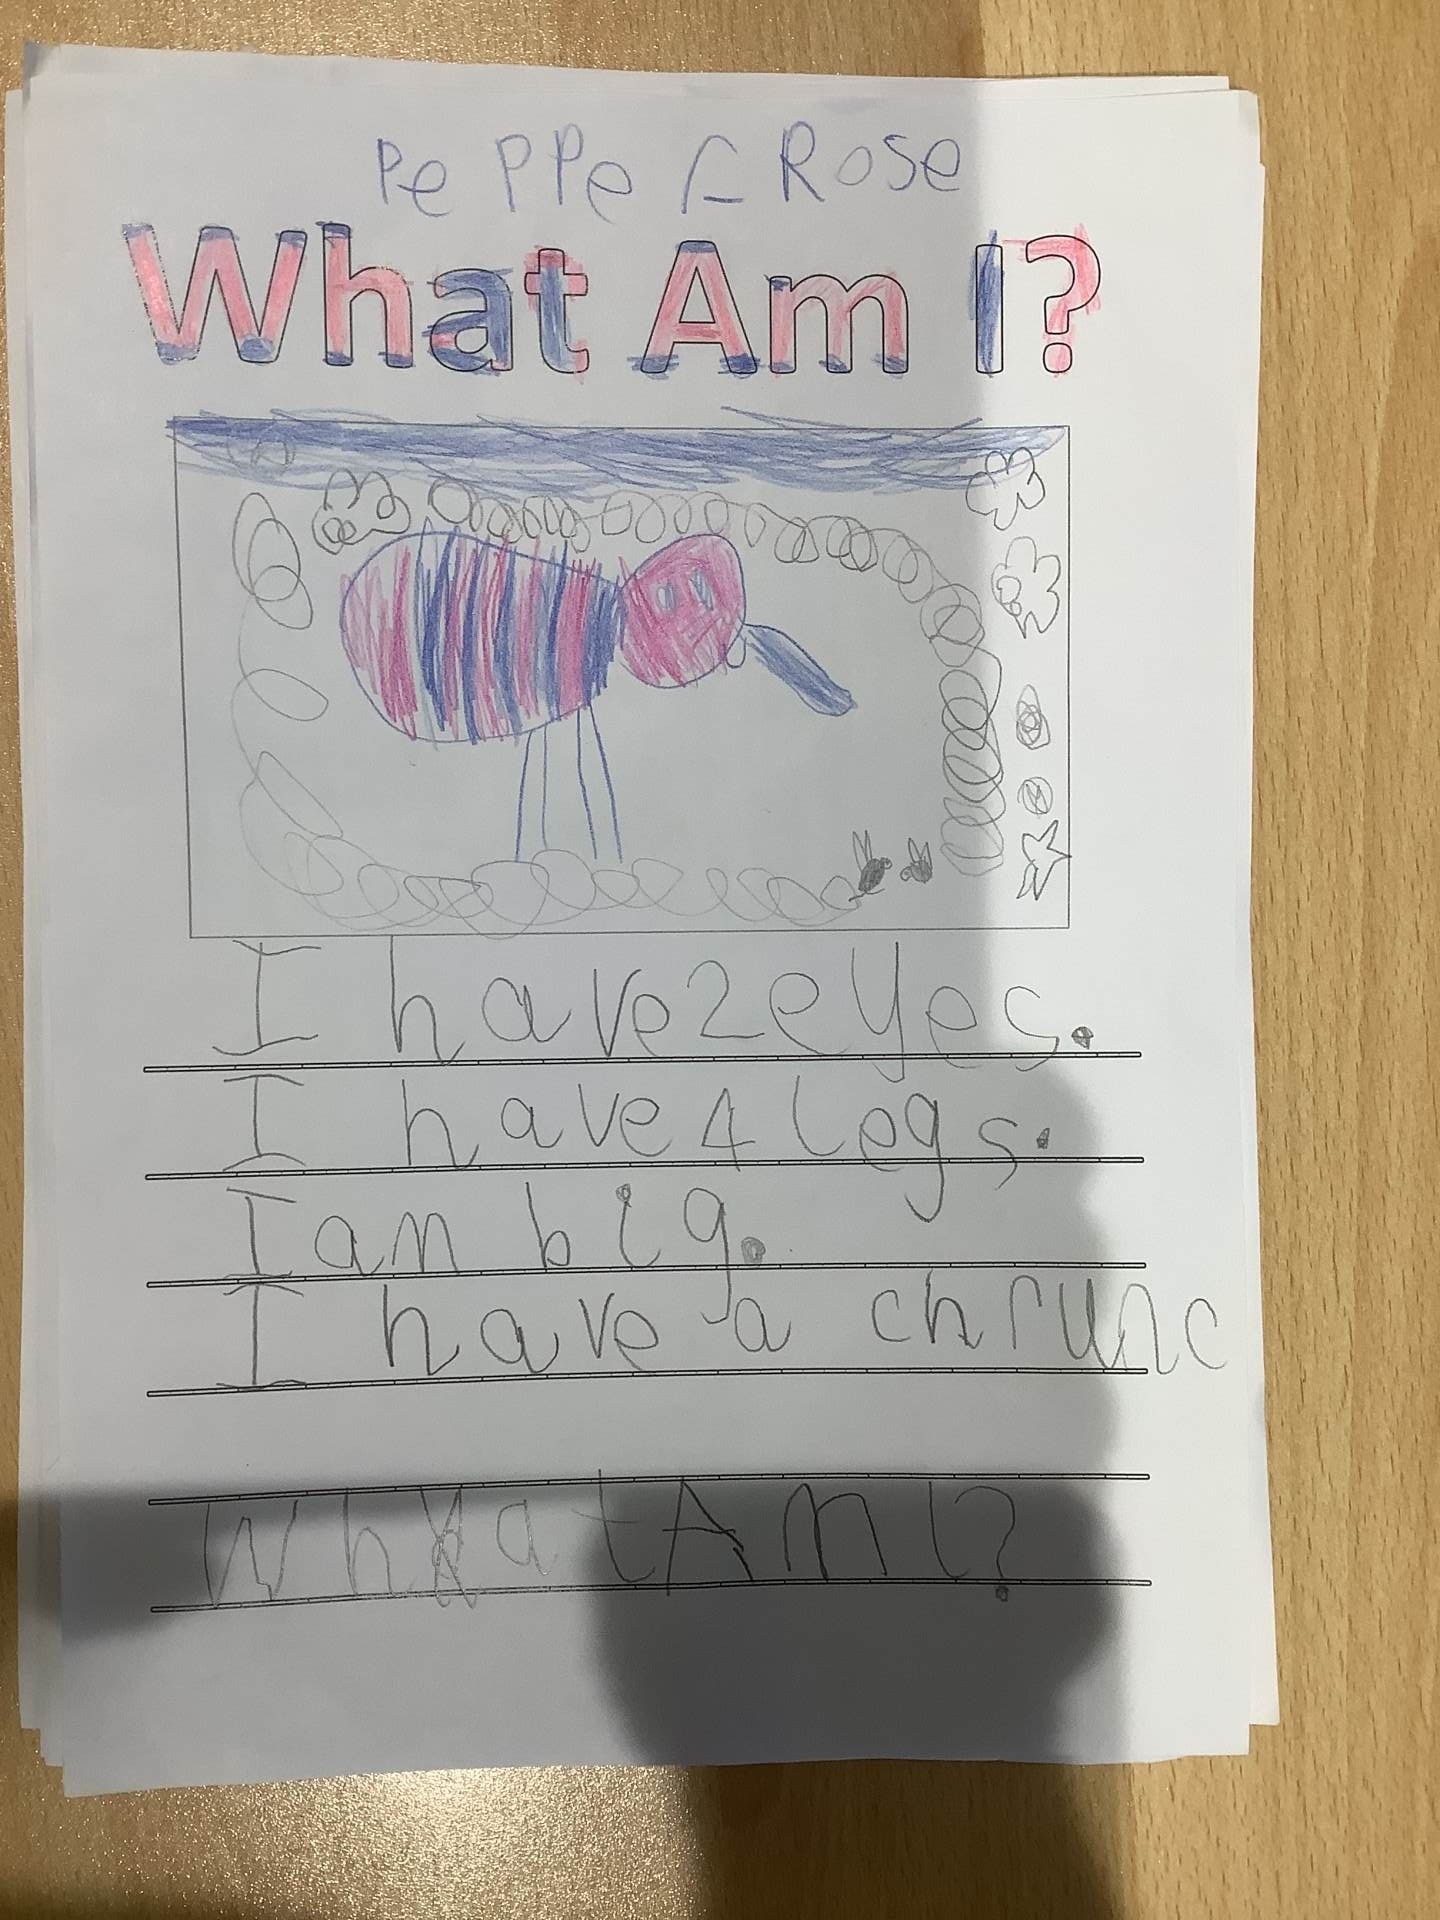 PePPer Rose
What Am I?
I have 2 eyes.
I have 4 legs.
I am big.
I have a chrunc
What Am I?